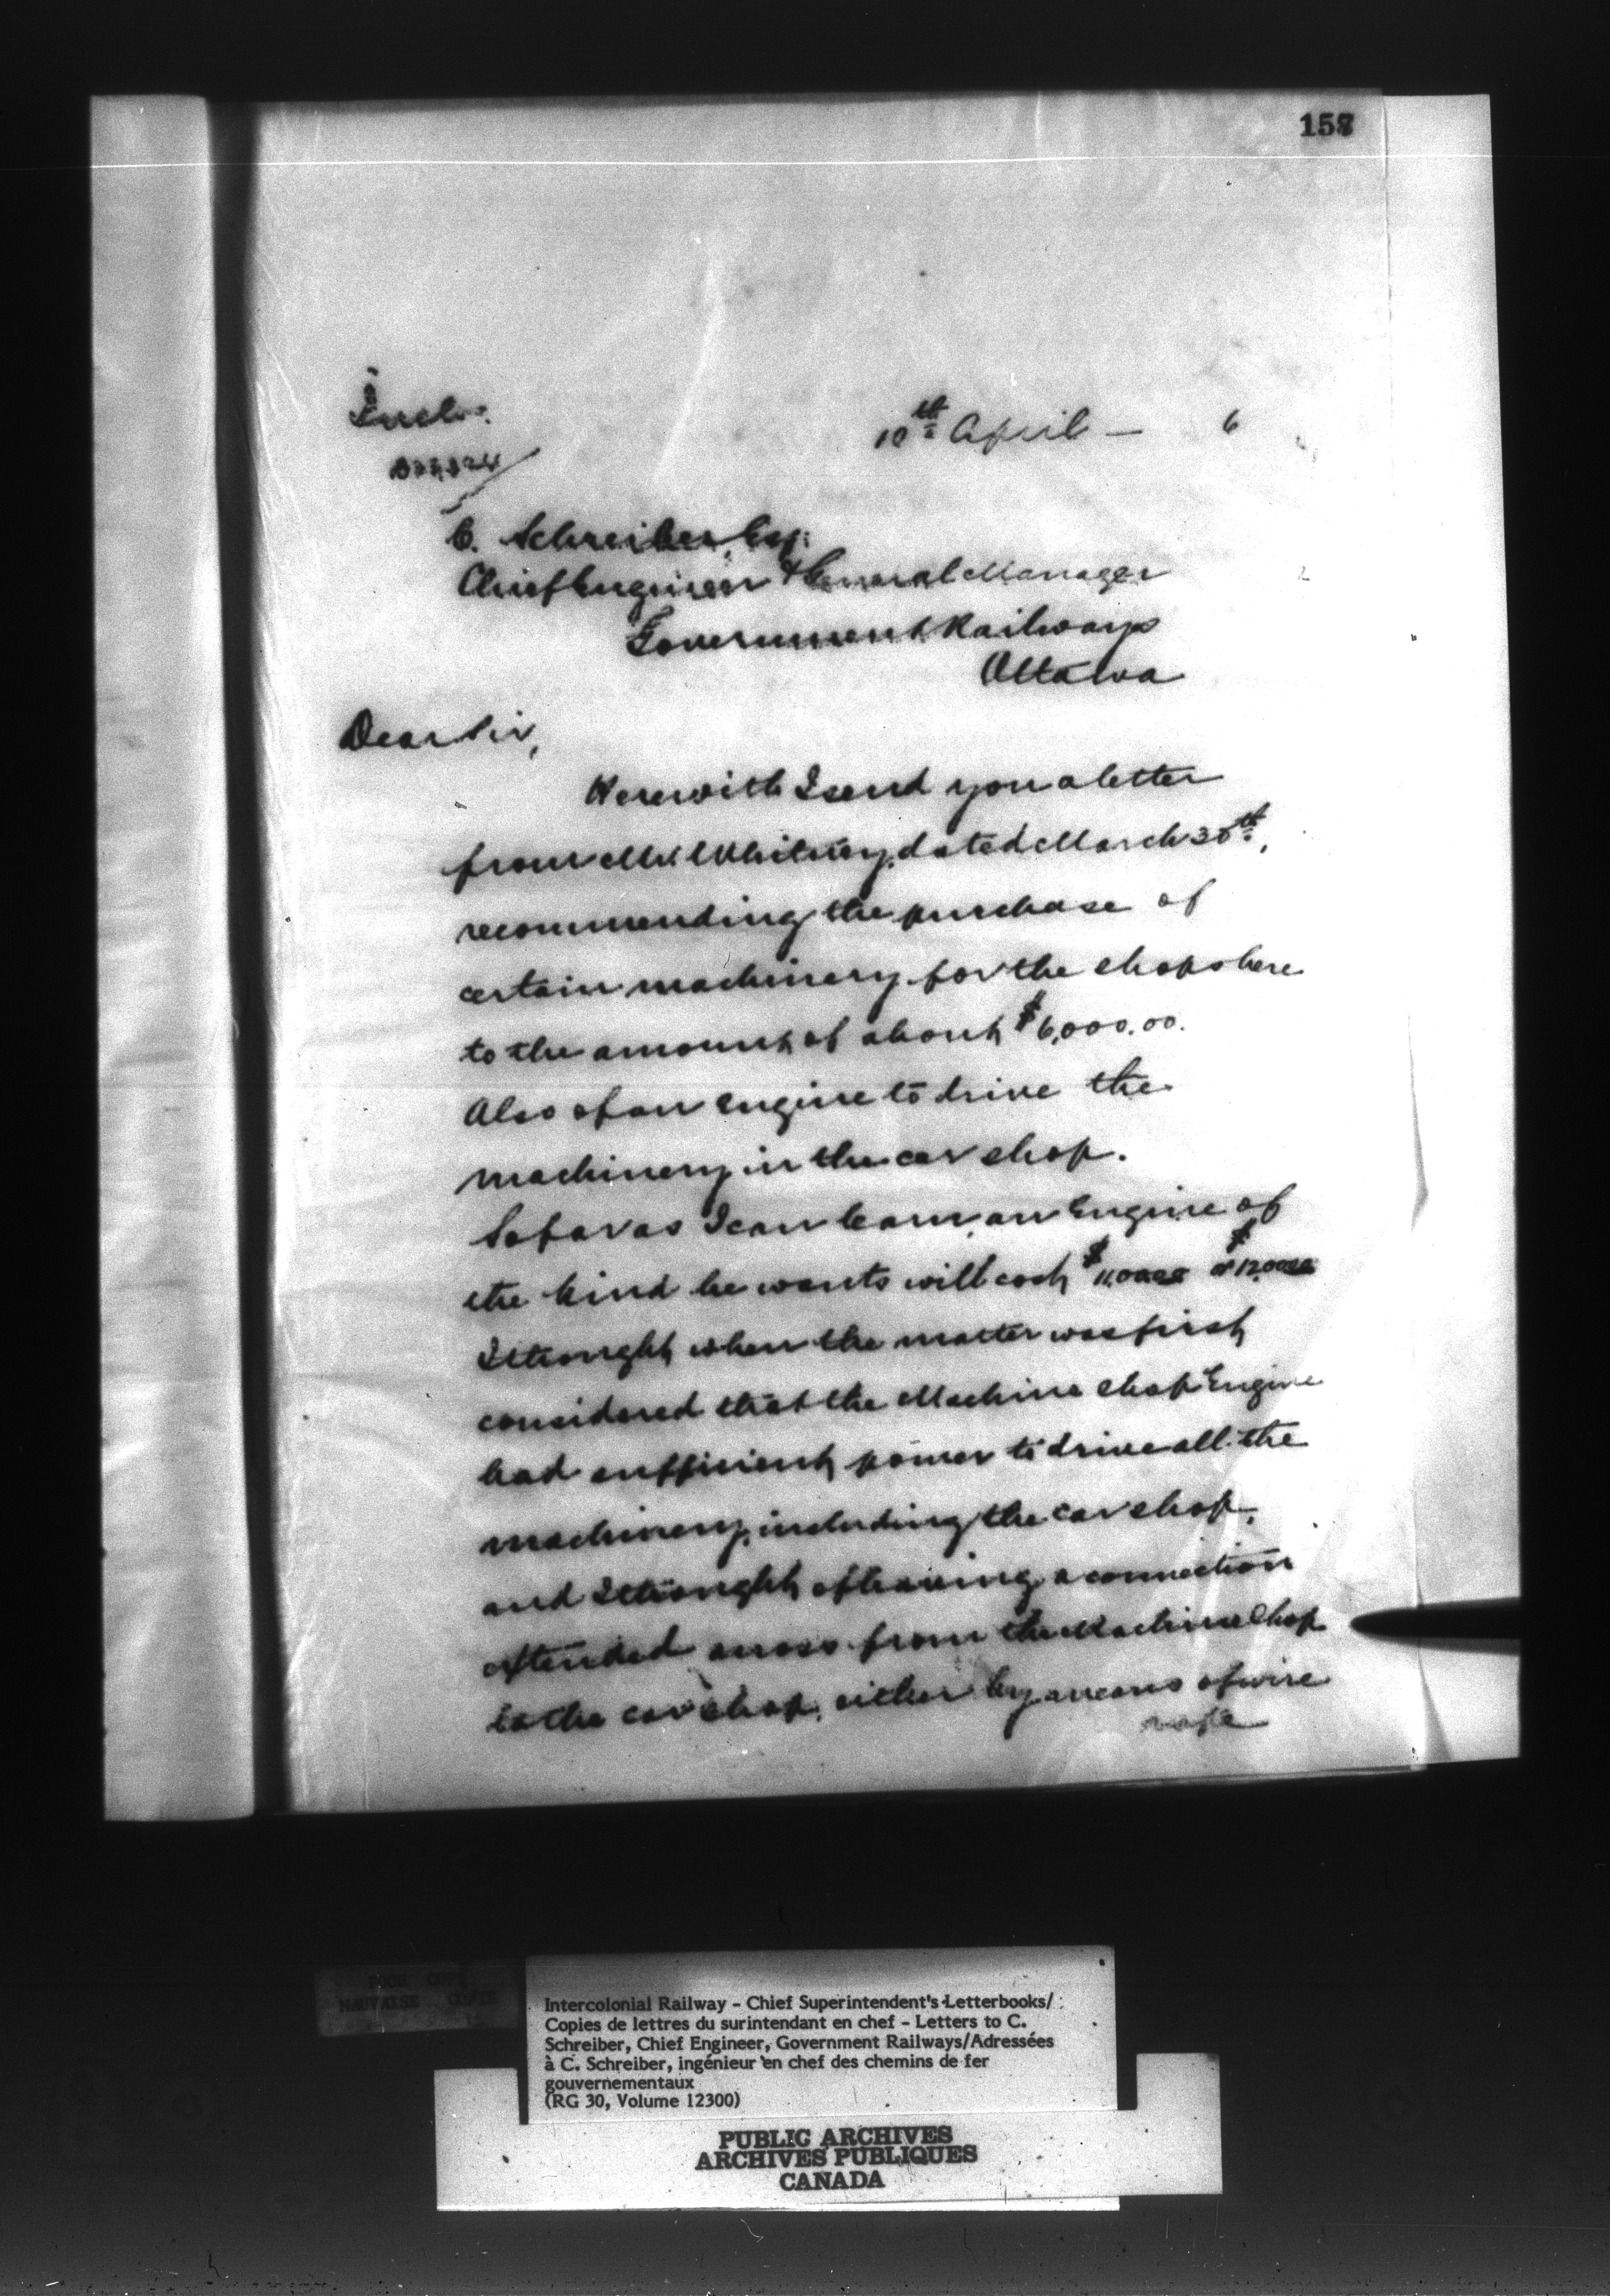 158
Incl.
10th April — 6
C. Schreiber, Esq:
Chief Engineer & General Manager
Government Railways
Ottawa
Dear Sir,
Herewith I send you a letter
from Mr. Whitney, dated March 30th,
recommending the purchase of
certain machinery for the shops here
to the amount of about $6,000.00.
Also of an engine to drive the
machinery in the car shop.
So far as I can learn, an Engine of
the kind he wants will cost $1,000 or $1,200
I thought when the matter was first
considered that the Machine shop Engine
had sufficient power to drive all the
machinery, including the car shop,
and I thought of having a connection
extended across from the Machine Shop
to the car shop, either by means of wire
rope
POOR COPY
MAUVAISE COPIE
Intercolonial Railway - Chief Superintendent's Letterbooks/
Copies de lettres du surintendant en chef - Letters to C.
Schreiber, Chief Engineer, Government Railways/Adressées
à C. Schreiber, ingénieur en chef des chemins de fer
gouvernementaux
(RG 30, Volume 12300)
PUBLIC ARCHIVES
ARCHIVES PUBLIQUES
CANADA